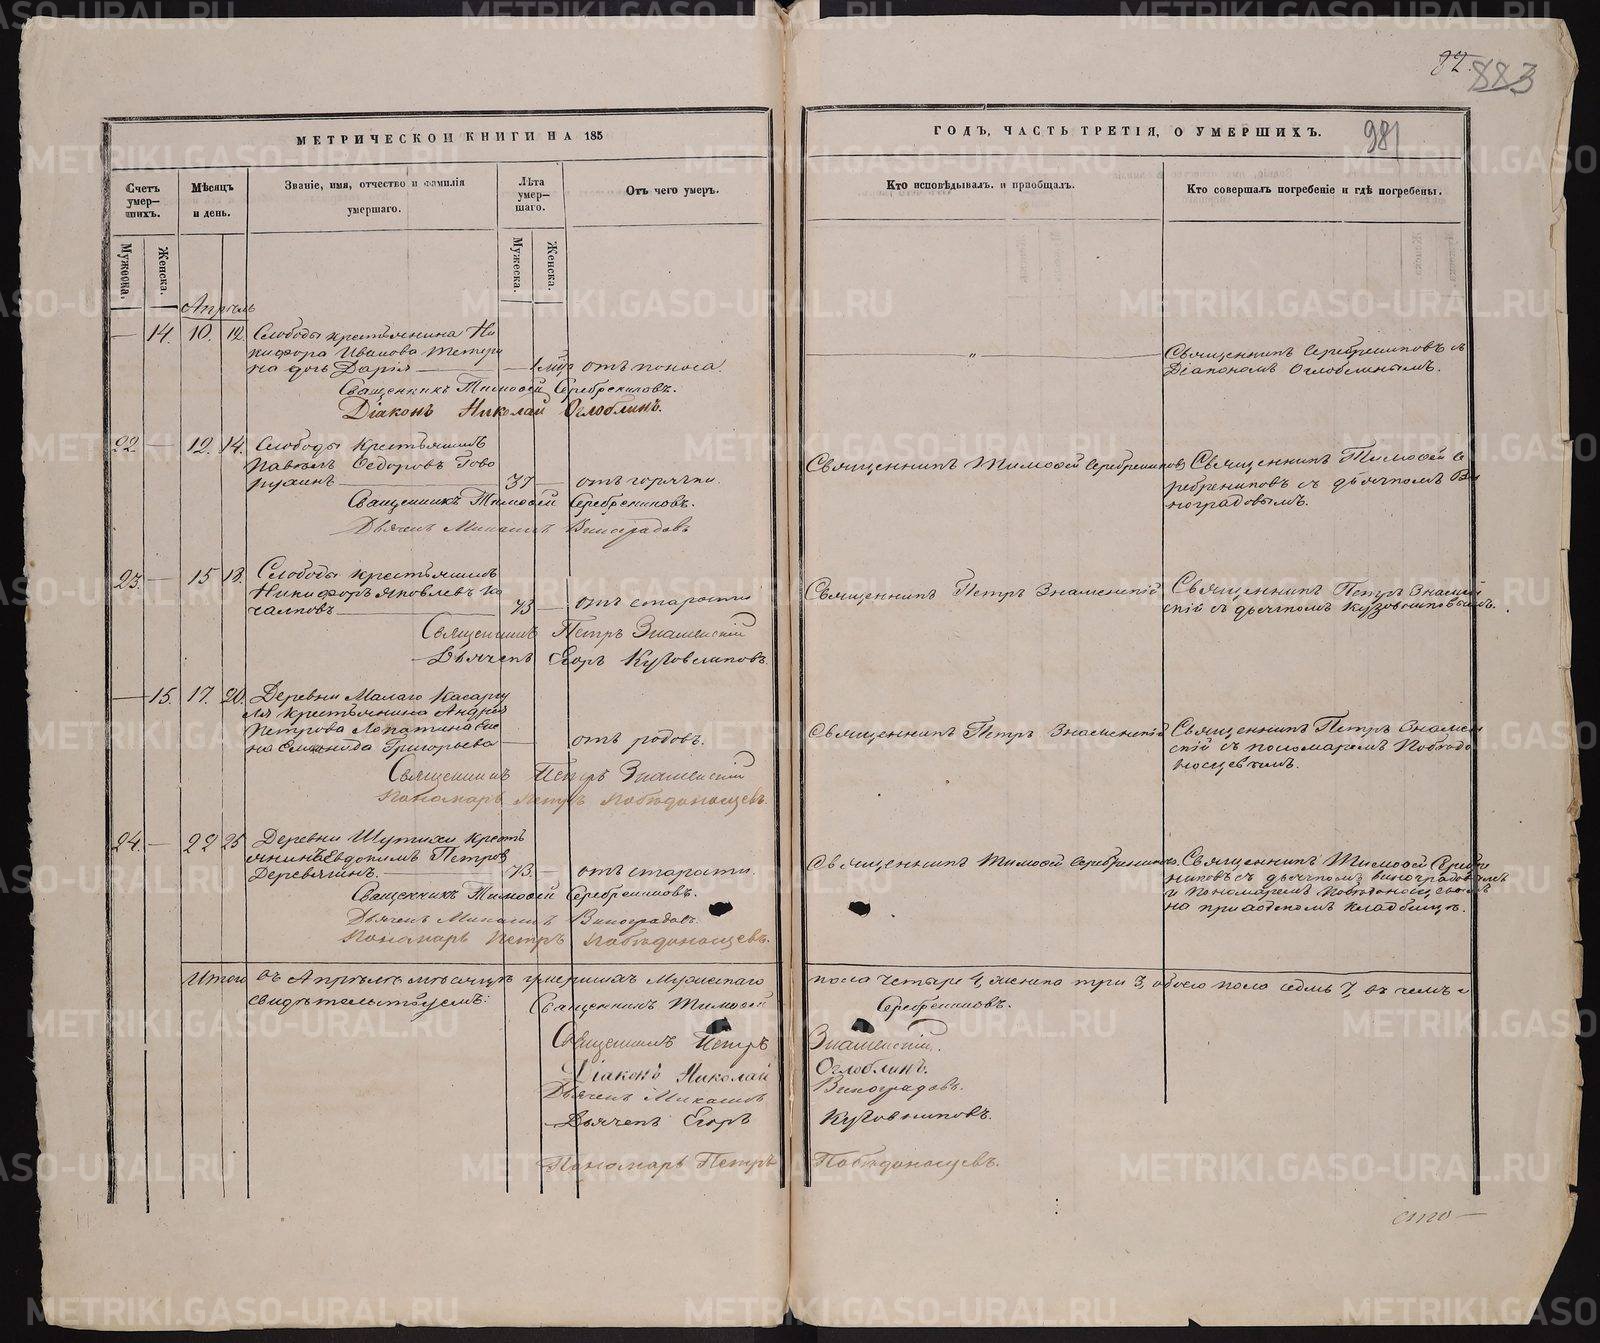 82. 883
МЕТРИЧЕСКОЙ КНИГИ НА 185
ГОДЪ, ЧАСТЬ ТРЕТІЯ, О УМЕРШИХЪ.
981
Счетъ умер-шихъ.
Мѣсяцъ и день.
Званіе, имя, отчество и фамилія умершаго.
Лѣта умер-шаго.
Отъ чего умеръ.
Кто исповѣдывалъ и пріобщалъ.
Кто совершалъ погребеніе и гдѣ погребены.
Мужеска.
Женска.
Мужеска.
Женска.
Апрѣль
— 14. 10. 12. Слободы крестьянина Ни
кифора Иванова
на дочь Дарія — отъ поноса. „
Священникъ Серебрениковъ съ
Діакономъ Оглоблинымъ.
Священникъ Тимоѳей Серебрениковъ.
Діаконъ Николай Оглоблинъ.
22 — 12. 14. Слободы крестьянинъ
Павелъ Ѳедоровъ Гово
рухинъ — 37 — отъ горячки.
Священникъ Тимоѳей Серебрениковъ
Священникъ Тимоѳей Се
ребрениковъ съ дьячкомъ Ви
ноградовымъ.
Священникъ Тимоѳей Серебрениковъ.
Дьячекъ Михаилъ Виноградовъ
23. — 15 18. Слободы крестьянинъ
Никифоръ Яковлевъ Ка
чалковъ — 73 — отъ старости
Священникъ Петръ Знаменскій
Священникъ Петръ Знамен
скій съ дьячкомъ Кузовниковымъ.
Священникъ Петръ Знаменскій
Дьячекъ Егоръ Кузовниковъ.
— 15. 17. 20. Деревни Малаго Касаргу
ля крестьянина Андрея
Петрова Лопатина же
на Григорьева — отъ родовъ.
Священникъ Петръ Знаменскій
Священникъ Петръ Знамен
скій съ пономаремъ Побѣдо
носцевымъ.
Священникъ Петръ Знаменскій
Пономарь Петръ Побѣдоносцевъ.
24. — 22 25 Деревни Шутихи кресть
янинъ Евдокимъ Петровъ
Деревягинъ. — 73. — отъ старости.
Священникъ Тимоѳей Серебрениковъ.
Священникъ Тимоѳей Сереbре
никовъ съ дьячкомъ Виноградовымъ
и пономаремъ Побѣдоносцевымъ
на приходскомъ кладбищѣ.
Священникъ Тимоѳей Серебрениковъ.
Дьячекъ Михаилъ Виноградовъ.
Пономарь Петръ Побѣдоносцевъ.
Итого въ Апрѣлѣ мѣсяцѣ умершихъ Мужескаго пола четыре 4, женска три 3, обоего пола седмь 7, въ чемъ и
свидѣтельствуемъ:
Священникъ Тимоѳей Серебрениковъ.
Священникъ Петръ Знаменскій.
Діаконъ Николай Оглоблинъ.
Дьячекъ Михаилъ Виноградовъ.
Дьячекъ Егоръ Кузовниковъ.
Пономарь Петръ Побѣдоносцевъ.
METRIKI.GASO-URAL.RU